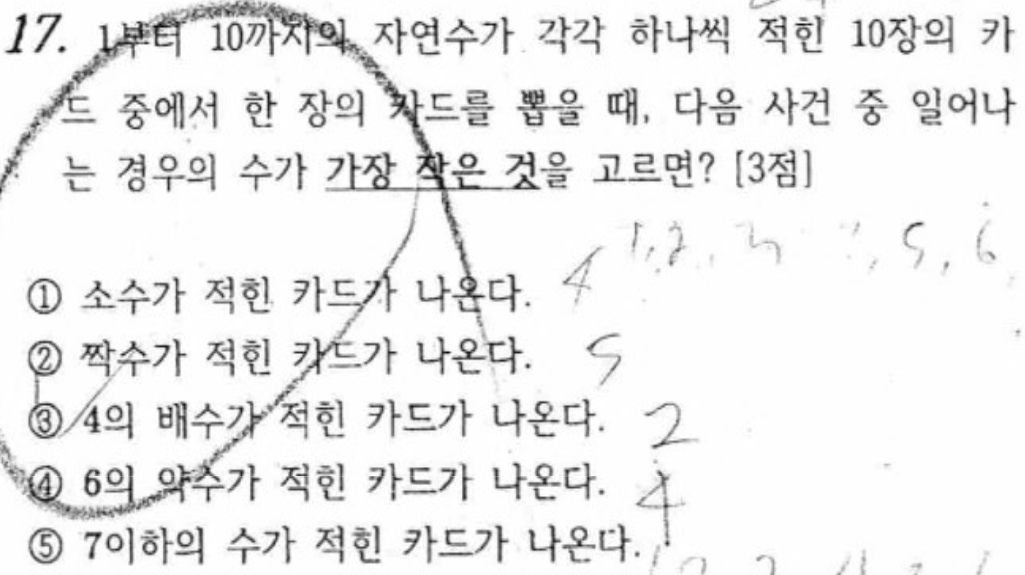 17. 1부터 10까지의 자연수가 각각 하나씩 적힌 10장의 카
드 중에서 한 장의 카드를 뽑을 때, 다음 사건 중 일어나
는 경우의 수가 가장 작은 것을 고르면? [3점]
① 소수가 적힌 카드가 나온다. 4
② 짝수가 적힌 카드가 나온다. 5
③ 4의 배수가 적힌 카드가 나온다. 2
④ 6의 약수가 적힌 카드가 나온다. 4
⑤ 7이하의 수가 적힌 카드가 나온다.